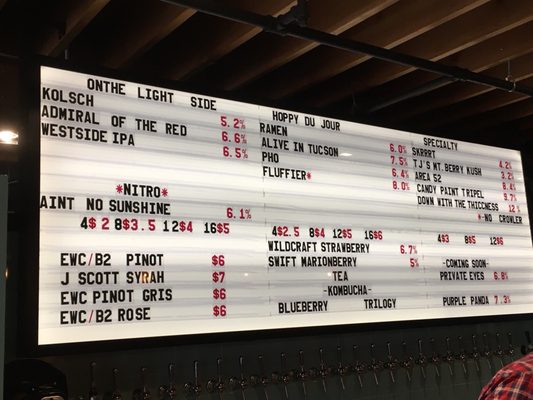 ONTHE LIGHT SIDE
KOLSCH 5.2%
ADMIRAL OF THE RED 6.6%
WESTSIDE IPA 6.5%
*NITRO*
AINT NO SUNSHINE 6.1%
4$2 8$3.5 12$4 16$5
EWC/B2 PINOT $6
J SCOTT SYRAH $7
EWC PINOT GRIS $6
EWC/B2 ROSE $6
HOPPY DU JOUR
RAMEN 6.0%
ALIVE IN TUCSON 7.5%
PHO 6.4%
FLUFFIER* 8.0%
4$2.5 8$4 12$5 16$6
WILDCRAFT STRAWBERRY 6.7%
SWIFT MARIONBERRY 5%
TEA
-KOMBUCHA-
BLUEBERRY TRILOGY
SPECIALTY
SKRRRT 4.2%
TJ'S MT. BERRY KUSH 3.2%
AREA 52
CANDY PAINT TRIPEL 9.7%
DOWN WITH THE THICCNESS 12%
*-NO CROWLER
4$3 8$5 12$6
-COMING SOON-
PRIVATE EYES 6.8%
PURPLE PANDA 7.3%